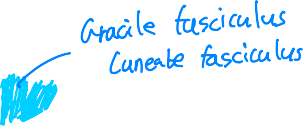 Gracile fasciculus
Cuneate fasciculus